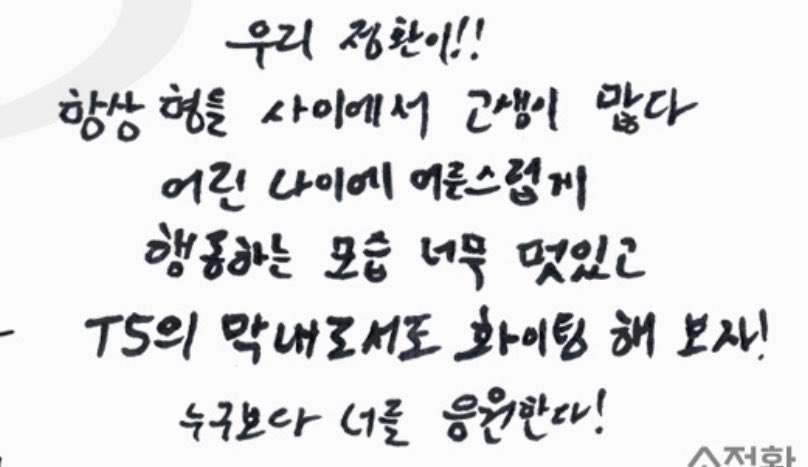 우리 정환이!!
항상 형들 사이에서 고생이 많다
어린 나이에 어른스럽게
행동하는 모습 너무 멋있고
T5의 막내로서도 화이팅 해 보자!
누구보다 너를 응원한다!
소정환